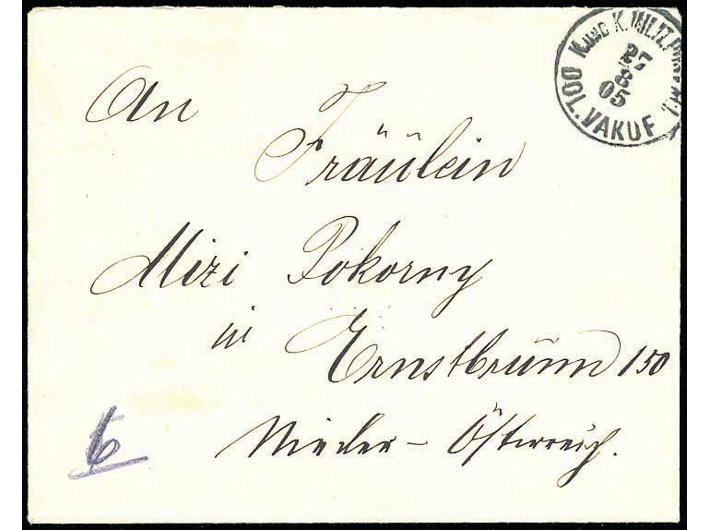 K. UND K. MILIT. POST
27
8
05
DOL. VAKUF
An
Fräulein
Mizi Pokorny
in
Ernstbrünn 150
Nieder-Österreich.